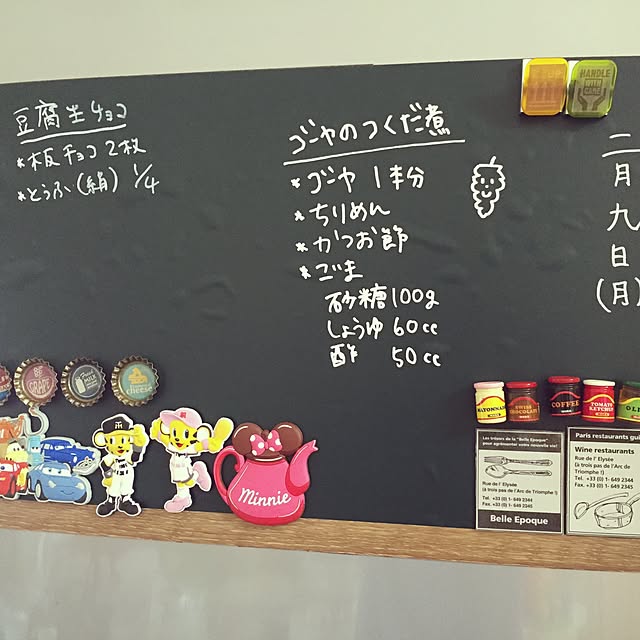 豆腐生チョコ
*板チョコ2枚
*とうふ(絹) 1/4
ゴーヤのつくだ煮
*ゴーヤ 1本分
*ちりめん
*かつお節
*ごま
砂糖100g
しょうゆ 60cc
酢 50cc
二月九日(月)
HANDLE WITH CARE
GRAPE
cheese
Minnie
MAYONNAISE
SWISS CHOCOLATE
COFFEE
TOMATO KETCHUP
OLI
Les trésors de la "Belle Epoque" pour agrémenter votre nouvelle vie!
Rue de l' Elysée
(à trois pas de l'Arc de Triomphe !)
Tel. +33 (0) 1- 649 2344
Fax. +33 (0) 1- 649 2345
Belle Epoque
Paris restaurants gui
Wine restaurants
Rue de l' Elysée
(à trois pas de l'Arc de Triomphe !)
Tel. +33 (0) 1- 649 2344
Fax. +33 (0) 1- 649 2345